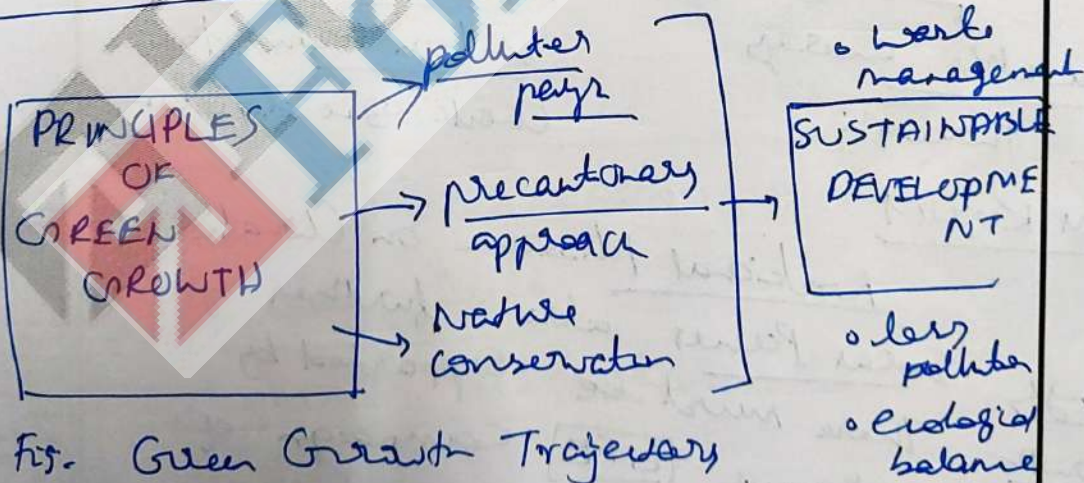 PRINCIPLES
OF
GREEN
GROWTH
polluter
pays
precautionary
approach
Nature
conservation
• waste
management
SUSTAINABLE
DEVELOPME
NT
• less
pollution
• ecological
balance
Fig. Green Growth Trajectory